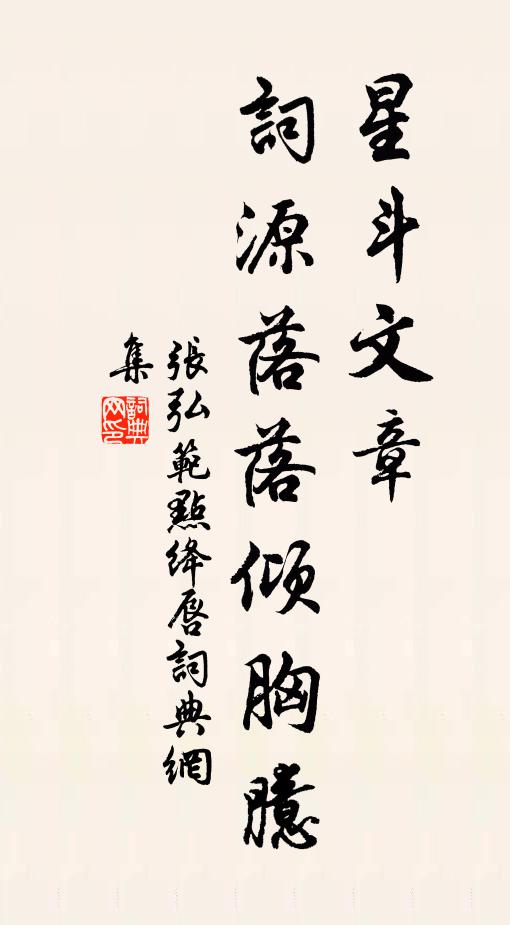 星斗文章
詞源落落傾胸臆
張弘範點絳唇詞典網
集
詞典
网印